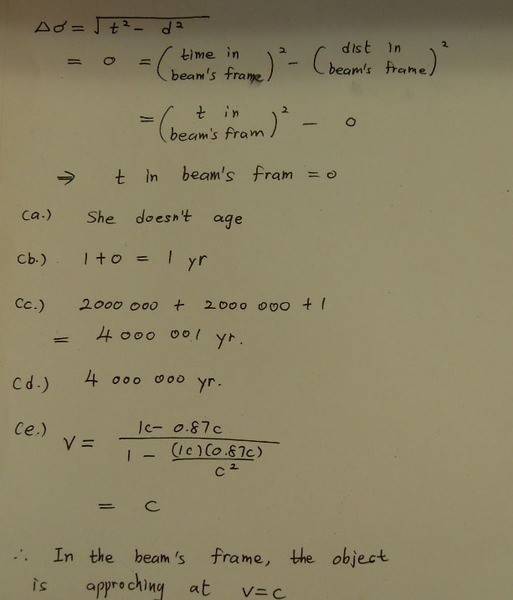 Δσ = √t² - d²
= 0 = (time in beam's frame)² - (dist in beam's frame)²
= (t in beam's fram)² - 0
⇒ t in beam's fram = 0
(a.) She doesn't age
(b.) 1+0 = 1 yr
(c.) 2000 000 + 2000 000 + 1
= 4 000 001 yr.
(d.) 4 000 000 yr.
(e.) V = (1c - 0.87c) / (1 - (1c)(0.87c)/c²)
= c
∴ In the beam's frame, the object
is approching at v=c